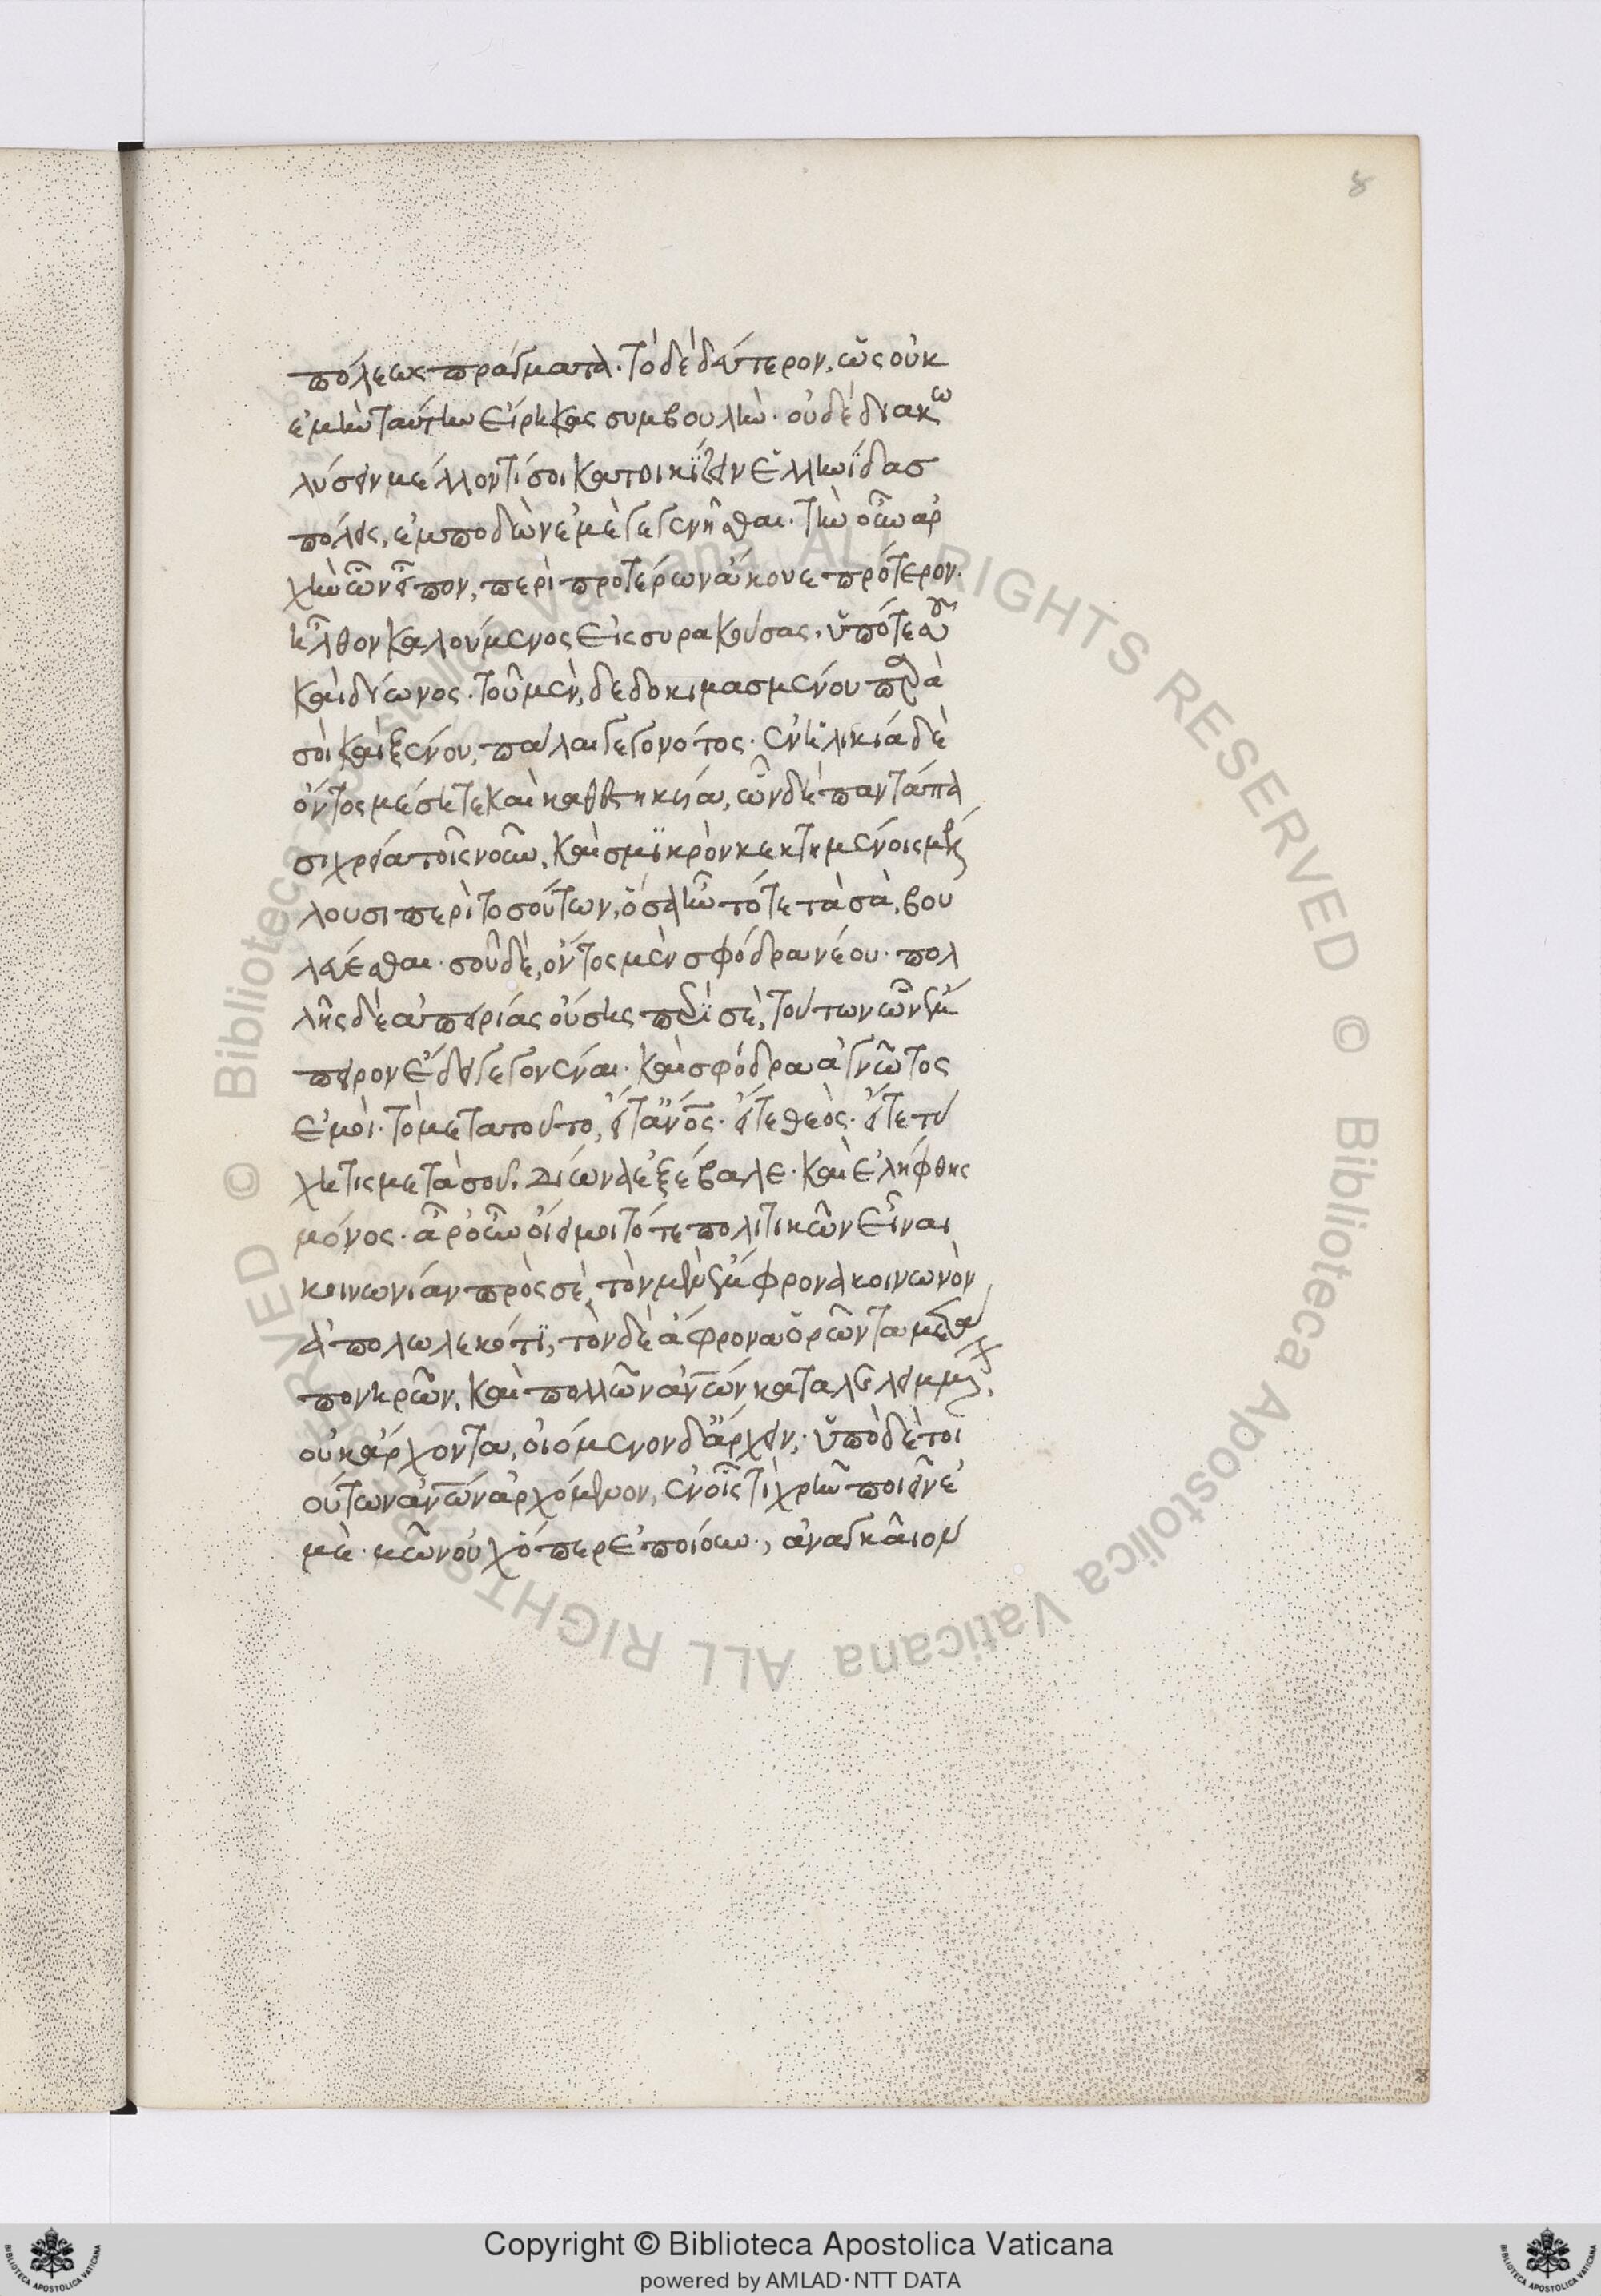 8
πόλεως πράγματα. τὸ δὲ δεύτερον, ὡς οὐκ
ἐμὴν ταύτην εἴρηκας συμβουλὴν. οὐδὲ διακω
λύσειν μέλλοντί σοι κατοικίζειν ἑλληνίδας
πόλεις, ἐμποδὼν ἐμὲ γεγενῆσθαι. τὴν οὖν ἀρ
χὴν ὧν εἶπον, περὶ προτέρων ἄκουε πρότερον.
ἦλθον καλούμενος εἰς συρακούσας. ὑπό τε σοῦ
καὶ δίωνος. τοῦ μὲν, δεδοκιμασμένου παρὰ
σοὶ καὶ ξένου, πάλαι γεγονότος. ἐν ἡλικίᾳ δὲ
ὄντος μέσῃ τε καὶ καθεστηκυίᾳ, ὧν δὴ παντάπα
σι χρεία τοῖς νοῦν, καὶ σμικρὸν κεκτημένοις μέλ
λουσι περὶ τοσούτων, ὅσα ἦν τότε τὰ σὰ, βου
λεύεσθαι. σοῦ δὲ, ὄντος μὲν σφόδρα νέου. πολ
λῆς δὲ ἀπειρίας οὔσης περὶ σὲ, τούτων ὧν ἔμ
πειρον ἔδει γεγονέναι. καὶ σφόδρα ἀγνῶτος
ἐμοὶ. τὸ μετὰ τοῦτο, εἴτ' ἄνος. εἴτε θεὸς. εἴτε τύ
χη τις μετὰ σοῦ, δίωνα ἐξέβαλε. καὶ ἐλήφθης
μόνος. ἆρ' οὖν οἴει μοι τότε πολιτικῶν εἶναι
κοινωνίαν πρὸς σὲ, τὸν μὲν ἔμφρονα κοινωνὸν
ἀπολωλεκότι, τὸν δὲ ἄφρονα ὁρῶντα μετὰ
πονηρῶν, καὶ πολλῶν ἀνῶν καταλελειμμέ,
οὐκ ἄρχοντα, οἰόμενον δ' ἄρχειν, ὑπὸ δὲ τοι
ούτων ἀνῶν ἀρχόμενον, ἐν οἷς τί χρῆν ποιεῖν ἐ
μὲ. μῶν οὐχ ὅπερ ἐποίουν., ἀναγκαῖον
Copyright © Biblioteca Apostolica Vaticana
powered by AMLAD·NTT DATA